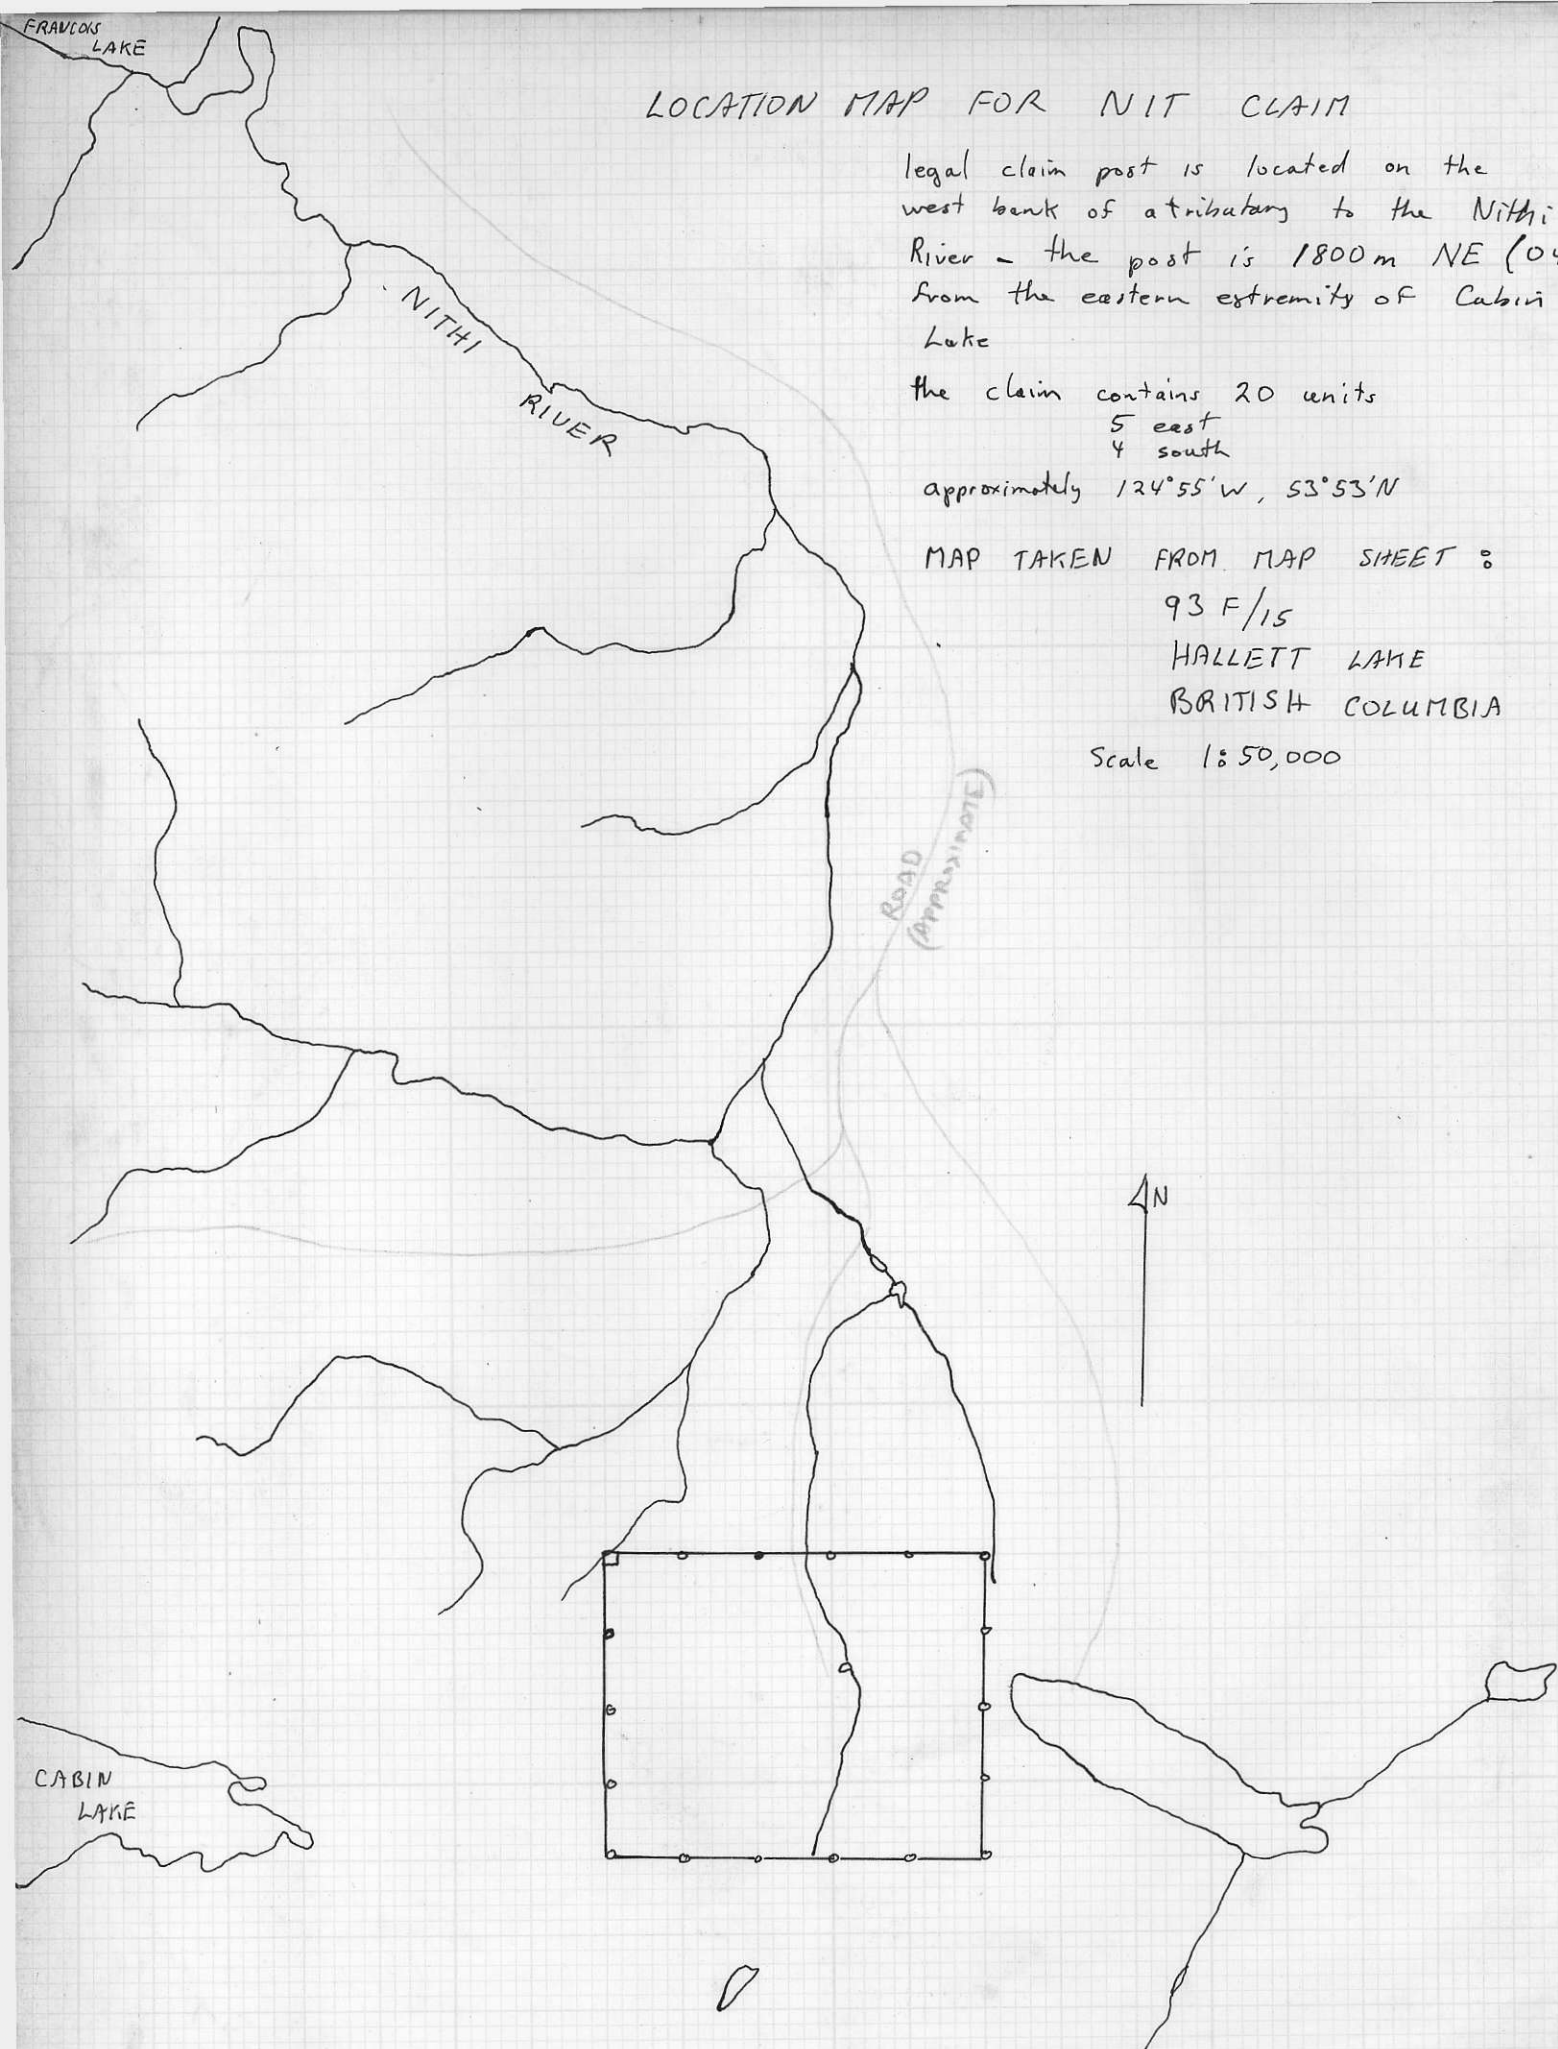 FRANCOIS
LAKE
LOCATION MAP FOR NIT CLAIM
legal claim post is located on the
west bank of a tributary to the Nithi
River - the post is 1800m NE (04
from the eastern extremity of Cabin
Lake
the claim contains 20 units
5 east
4 south
approximately 124°55'W, 53°53'N
MAP TAKEN FROM MAP SHEET :
93 F/15
HALLETT LAKE
BRITISH COLUMBIA
Scale 1:50,000
NITHI
RIVER
ROAD
(APPROXIMATE)
N
CABIN
LAKE